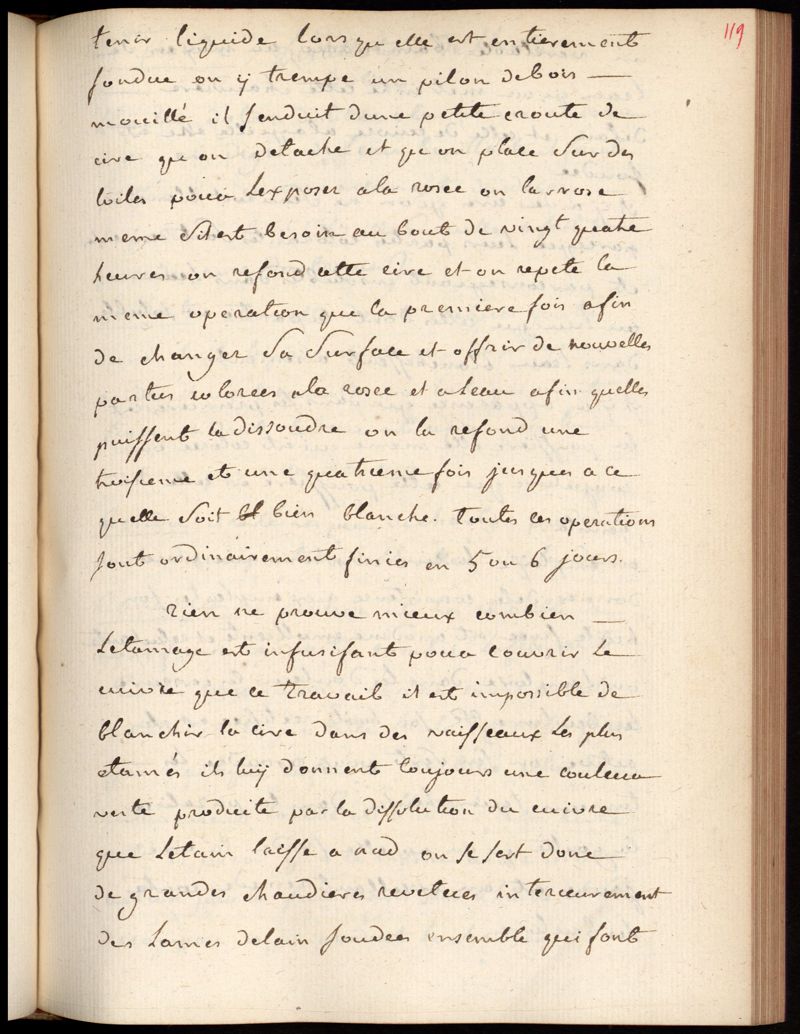 119
tenir liquide lorsquelle est entierement
fondue on ij trempe un pilon debois —
mouillé il senduit dune petite croute de
cire qu on detache et qu on place Sur des
toiles pour Lexposer ala rosee on larrose
meme Silest besoin au bout de vingt quatre
heures on refond cette cire et on repete la
meme operation que la premiere fois afin
de changer Sa Surface et offrir de nouvelles
parties colorees ala rosee et aleau afin quelles
puissent la dissoudre on la refond une
troisieme et une quatrieme fois jusques a ce
quelle Soit bien blanche. toutes ces operations
sont ordinairement finies en 5 ou 6 jours.
rien ne prouve mieux combien —
Letamage est insufisant pour couvrir Le
cuivre que ce travail il est impossible de
blanchir la cire dans des vaisseaux Les plus
etamés ils luij donnent toujours une couleur
verte produite par la dissolution du cuivre
que Letain laisse a nud on se sert donc
de grandes chaudieres revetues interieurement
des Lames detain soudees ensemble qui font